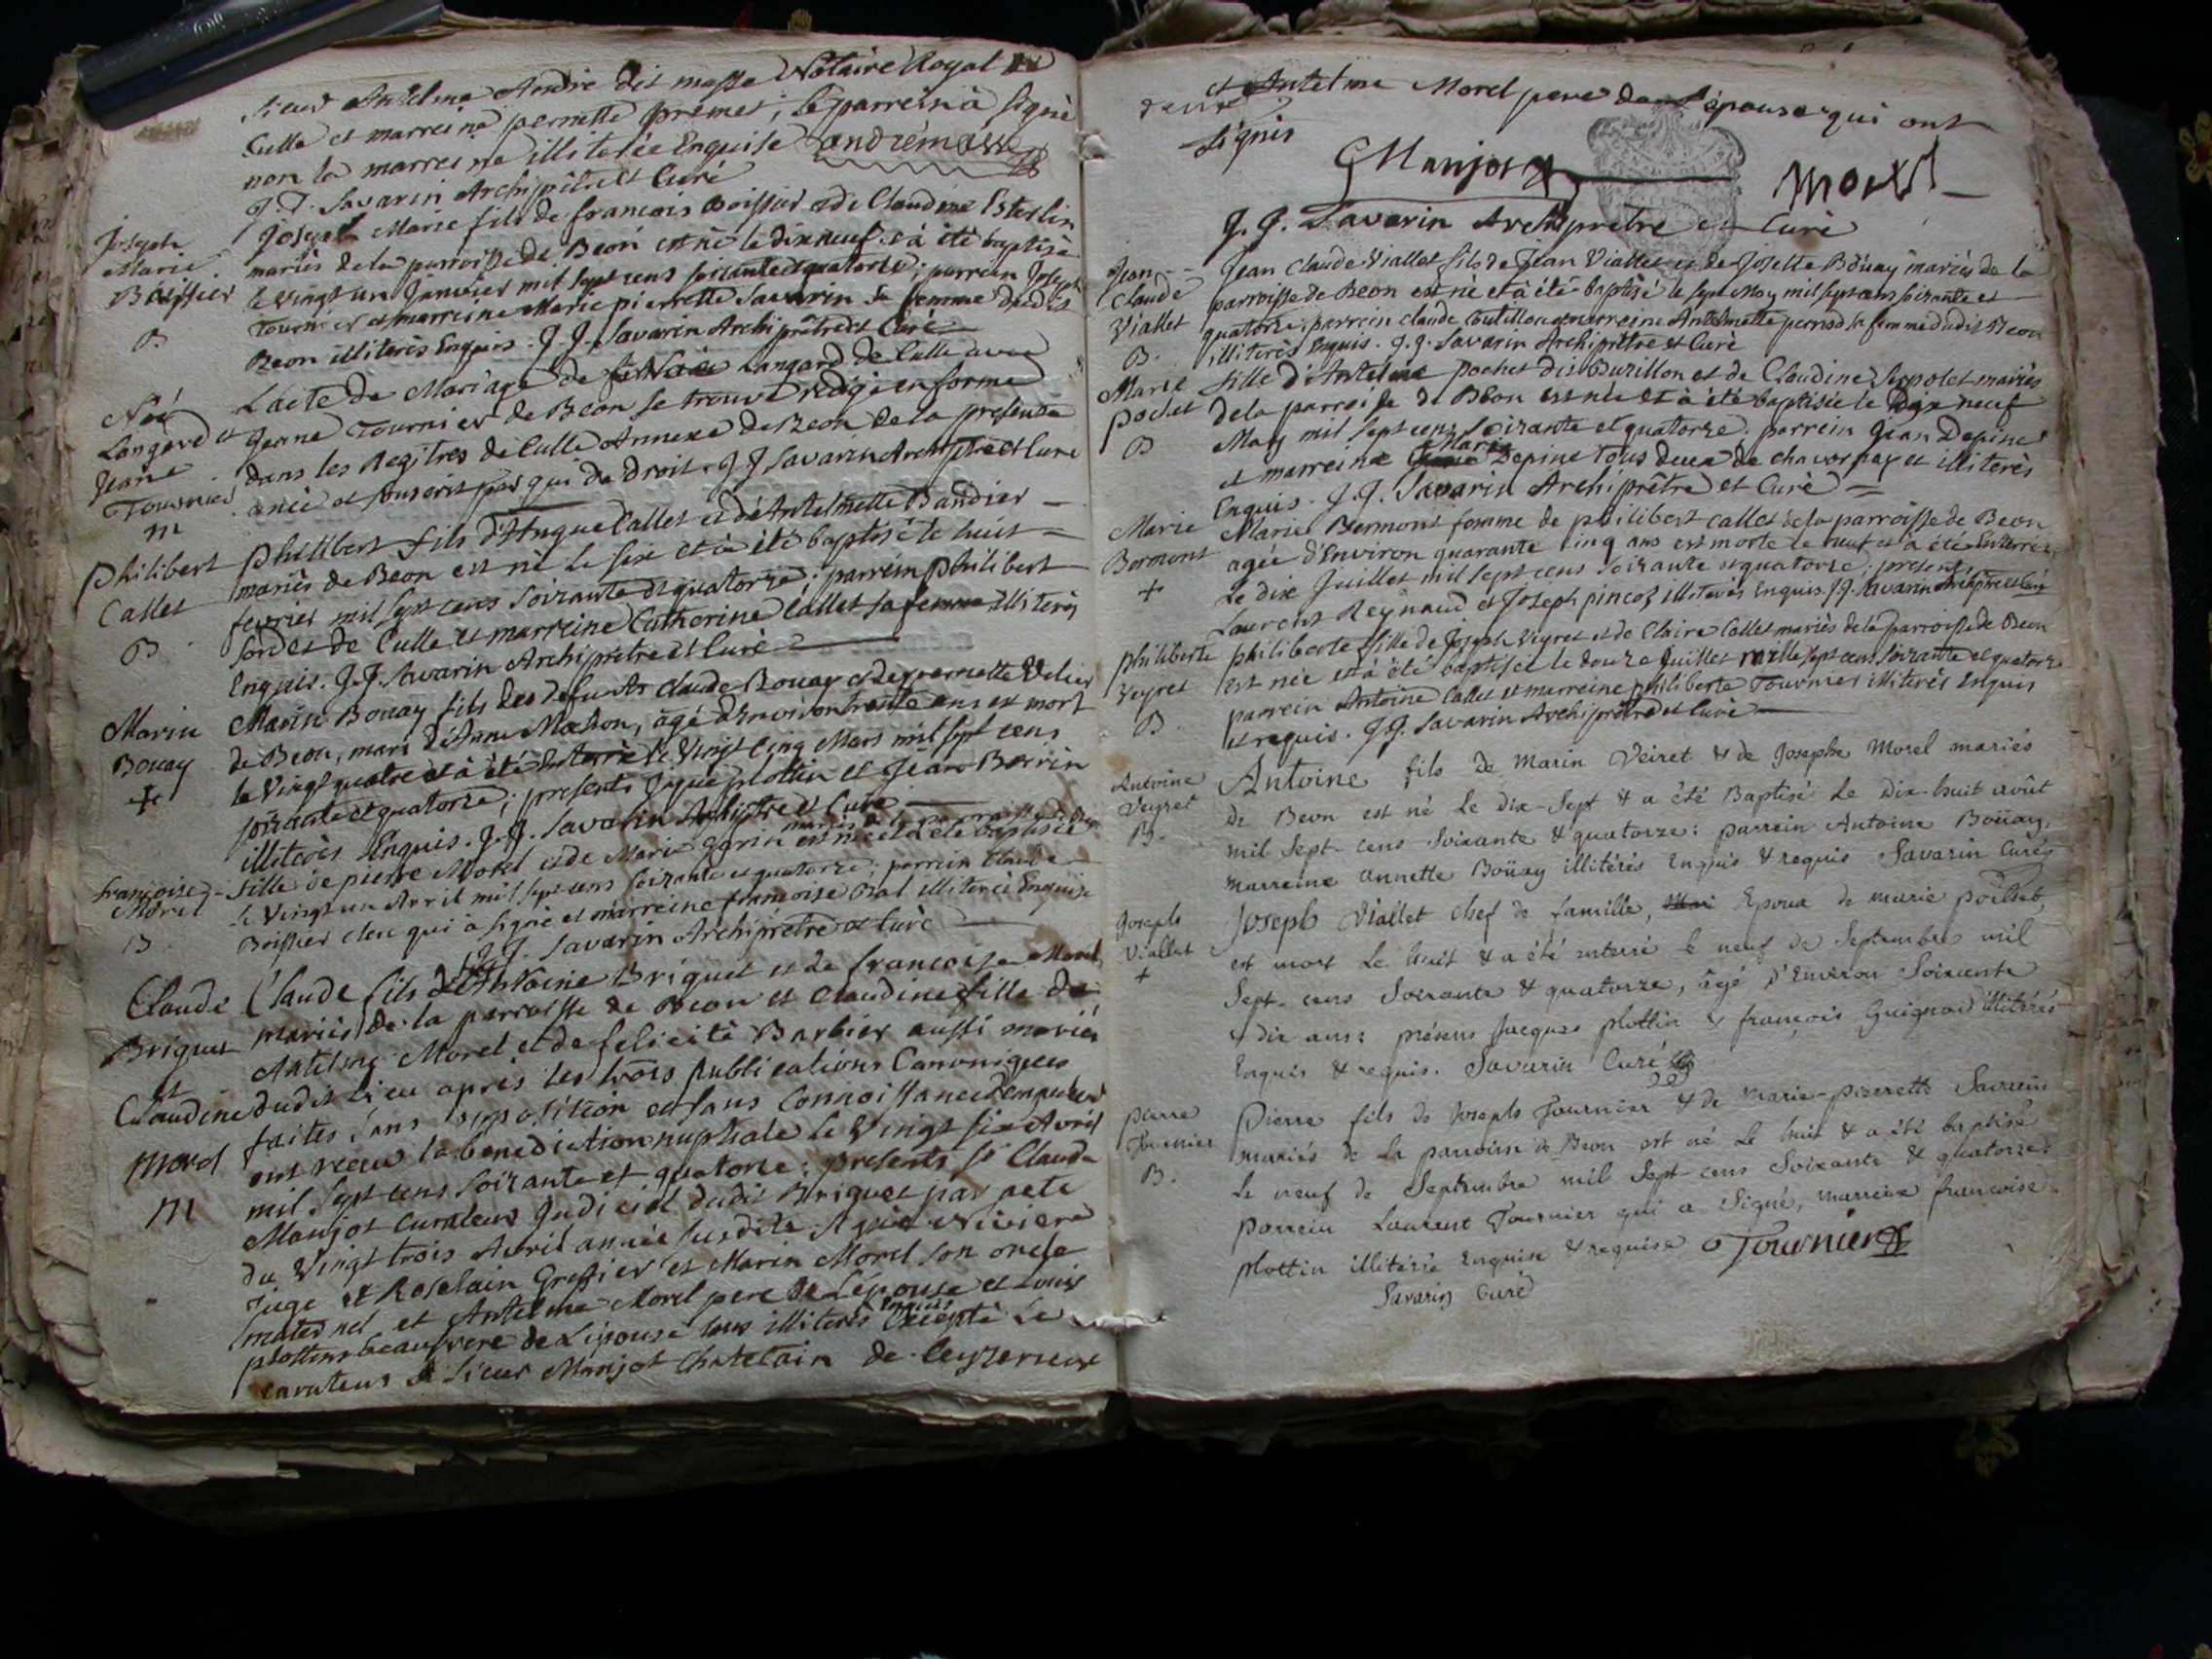 Sieur Antelme André dit masse Notaire Royal
Culle et marreine pernette premet; le parrein à signé
non la marreine illiterée Enquise andrémasse
J. J. Savarin Archiprêtre et Curé
Joseph
Marie
Boissier
B
Joseph Marie fils de francois Boissier et de Claudine Esterlin
mariés de la parroisse de Beon est né le dix neuf et à été baptisé
le vingt un Janvier mil sept cens soixante et quatorze; parrein Joseph
Tournier et marreine Marie pierrette Savarin sa femme dudit
Beon illiterés Enquis. J. J. Savarin Archiprêtre et Curé
Noé
Langard et
Jeane
Tournier
m
L'acte de Mariage de Noé Langard de Culle avec
Jeane Tournier de Beon se trouve redigé en forme
dans les Registres de Culle Annexe de Beon de la presente
année et souscrit par qui de droit. J. J. Savarin Archiprêtre et Curé
Philibert
Callet
B
Philibert fils d'Hugue Callet et d'Antelmette Baudier
mariés de Beon est né le six et à été baptisé le huit
fevrier mil sept cens soixante et quatorze; parrein philibert
de Culle et marreine Catherine Callet sa femme illiterés
Enquis. J. J. Savarin Archiprêtre et Curé
Marin
Bouay
+
Marin Bouay fils des defunts Claude Bouay et de pernette
de Beon, mari d'Anne Mathon, agé d'environ trente ans est mort
le vingt quatre et à été Enterré le vingt cinq Mars mil sept cens
soixante et quatorze; presents Jaque plottin et Jean Borrin
illiterés Enquis. J. J. Savarin Archiprêtre et Curé
françoise
Morel
B
fille de pierre Morel et de Marie gorin mariés de la parroisse de Beon est née et à été baptisée
le vingt un Avril mil sept cens soixante et quatorze; parrein Claude
Boissier clerc qui à signé et marreine francoise illiterée Enquise
J. J. Savarin Archiprêtre et Curé
Claude
Briquet
et
Claudine
Morel
M
Claude fils d'Antoine Briquet et de francoise Morel
mariés de la parroisse de Beon et Claudine fille de
Antelme Morel et de felicité Barbier aussi mariés
dudit lieu après les trois publications Canoniques
faites, sans opposition et sans Connoissance d'empechement
ont receu la benediction nuptiale le vingt six Avril
mil sept cens soixante et quatorze; presents sr Claude
Manjot Curateur Judiciel dudit Briquet par acte
du vingt trois Avril année susdite, signé Riviere
juge et Roselain Greffier et Marin Morel son oncle
maternel et Antelme Morel pere de l'épouse et Louis
plottin beaufrere de l'épouse tous illiterés Enquis excepté le
curateur sieur Manjot Chatelain de Ceyzerieux
et Antelme Morel pere de l'épouse qui ont
signés
G Manjot Morel
J. J. Savarin Archiprêtre et Curé
Jean
Claude
Viallet
B
Jean Claude Viallet fils de Jean Viallet et de Josette Boüay mariés de la
parroisse de Beon est né et à été baptisé le sept May mil sept cens soixante et
quatorze; parrein claude et marreine Antelmette sa femme dudit Beon
illiterés Enquis. J. J. Savarin Archiprêtre et Curé
Marie
pochet
B
fille d'Antelme pochet dit Burillon et de Claudine Serpolet mariés
de la parroisse de Beon est née et à été baptisée le dix neuf
May mil sept cens soixante et quatorze; parrein Jean Depine
et marreine Marie Depine tous deux de chavornay et illiterés
Enquis. J. J. Savarin Archiprêtre et Curé
Marie
Bermont
+
Marie Bermont femme de philibert callet de la parroisse de Beon
agée d'Environ quarante cinq ans est morte le neuf et à été Enterrée
le dix Juillet mil sept cens soixante et quatorze; presents
Laurent Reynaud et Joseph pincoz illiterés Enquis. J. J. Savarin Archiprêtre et Curé
philiberte
veyret
B
philiberte fille de Joseph Veyret et de Claire Callet mariés de la parroisse de Beon
est née et à été baptisée le douze Juillet mille sept cens soixante et quatorze
parrein Antoine Callet et marreine philiberte Tournier illiterés Enquis
et requis. J. J. Savarin Archiprêtre et Curé
Antoine
Veyret
B.
Antoine fils de Marin Veiret & de Josephe Morel mariés
de Beon est né le dix-sept & a été Baptisé le dix-huit août
mil sept-cens soixante & quatorze: parrein Antoine Boüay,
marreine annette Boüay illitérés Enquis & requis Savarin Curé
Joseph
Viallet
+
Joseph Viallet chef de famille, Epoux de marie
est mort le huit & a été enterré le neuf de septembre mil
sept-cens soixante & quatorze, âgé d'Environ soixante
& dix ans: présens Jacques plottin & françois Guignod illitérés
Enquis & requis. Savarin Curé
pierre
Tournier
B.
Pierre fils de Joseph Tournier & de marie-pierrette Savarin
mariés de la parroisse de Beon est né le huit & a été baptisé
le neuf de septembre mil sept-cens soixante & quatorze:
parrein Laurent Tournier qui a signé, marreine françoise
plottin illitérée Enquise & requise Tournier
Savarin Curé